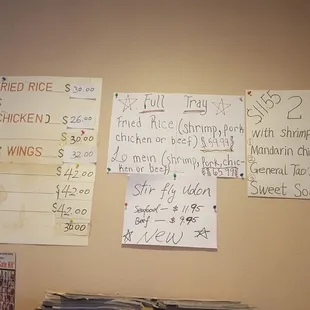 FRIED RICE $ 30.00
CHICKEN) $ 26.00
$ 30.00
WINGS $ 32.00
$ 42.00
$ 42.00
$ 42.00
30.00
☆ Full Tray ☆
Fried Rice (shrimp, pork
chicken or beef)
Lo mein (shrimp, Pork, chic-
ken or beef)
Stir fly Udon
Seafood - $ 11.95
Beef - $ 9.95
☆ NEW ☆
$11.55 2
with shrimp
Mandarin chi
General Tao
Sweet So